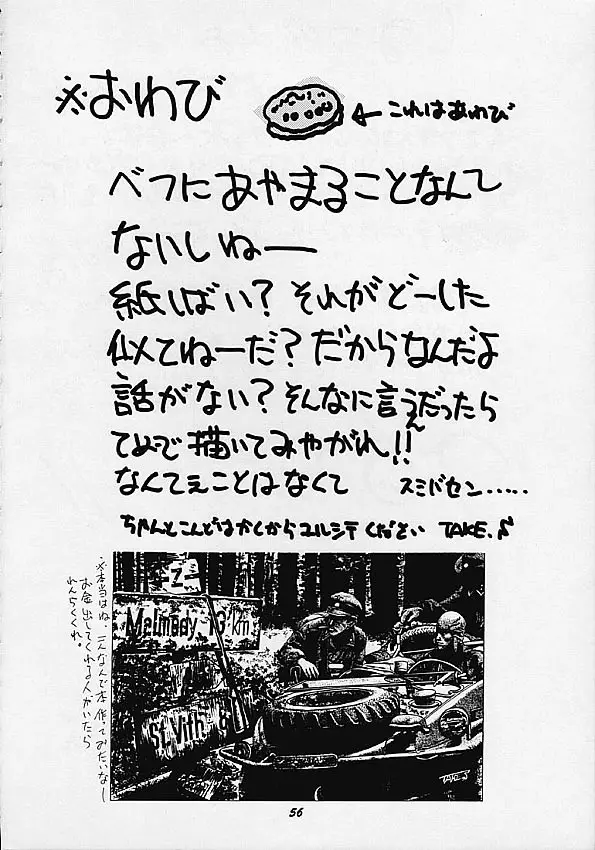 ※おわび
←これはあわび
べつにあやまることなんて
ないしねー
紙しばい?それがどーした
似てねーだ?だからなんだよ
話がない?そんなに言うんだったら
てめーで描いてみやがれ!!
なんてぇことはなくて スミバセン……
ちゃんとこんどはかくからユルシテください TAKE.♪
※本当はね、こんなんで本作ってみたいなー
お金出してくれる人がいたら
れんらくくれ。
Z
Malmedy 13 km
St.Vith 8
TAKE.♪
56